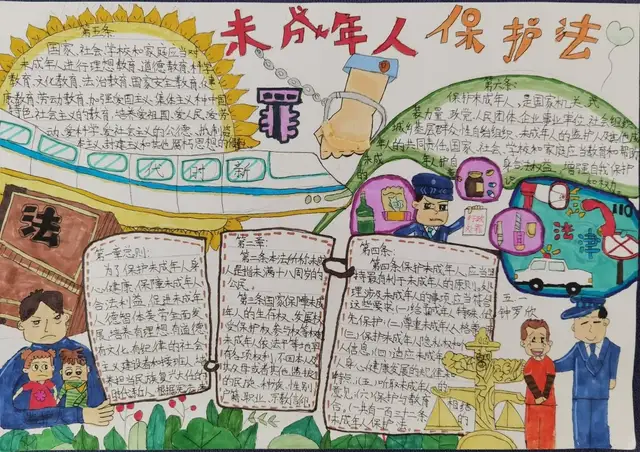 未成年人保护法
第五条:
国家、社会、学校和家庭应当对
未成年人进行理想教育、道德教育、科学
教育、文化教育、法治教育、国家安全教育、健
康教育、劳动教育、加强爱国主义、集体主义和中国
特色社会主义的教育，培养爱祖国、爱人民、爱劳
动、爱科学、爱社会主义的公德，抵制资
第六条:
保护未成年人，是国家机关、武
装力量、政党、人民团体、企业事业单位、社会组织
城乡基层群众性自治组织、未成年人的监护人及其他成
年人的共同责任。国家、社会、学校和家庭应当教育和帮助
未成年人维护自身合法权益，增强自我保护
代时新
法
110
法律
第一章总则:
为了保护未成年人身
心健康，保障未成年人
合法权益，促进未成年
人德智体美劳全面发
展，培养有理想、有道德
有文化、有纪律的社会
主义建设者和接班人，培
养担当民族复兴大任的
时代新人，根据宪法
第二章:
第二条本法所称未成
年人是指未满十八周岁的
公民。
第三条国家保障未成
年人的生存权、发展权
受保护权、参与权等权利
未成年人依法平等地享
有各项权利，不因本人
及父母或者其他监护人
的民族、种族、性别、户
籍、职业、宗教信仰
第四条:
第四条保护未成年人，应当坚
持最有利于未成年人的原则。处
理涉及未成年人的事项，应当符合
下列要求:(一)给予未成年人特殊、优
先保护(二)尊重未成年人格尊
严(三)保护未成年人隐私权和个
人信息(四)适应未成年人
身心健康发展的规律和
特点(五)听取未成年人的
意见(六)保护与教育
结合。
一共有一百三十二条
未成年人保护法
五一
钟罗欣